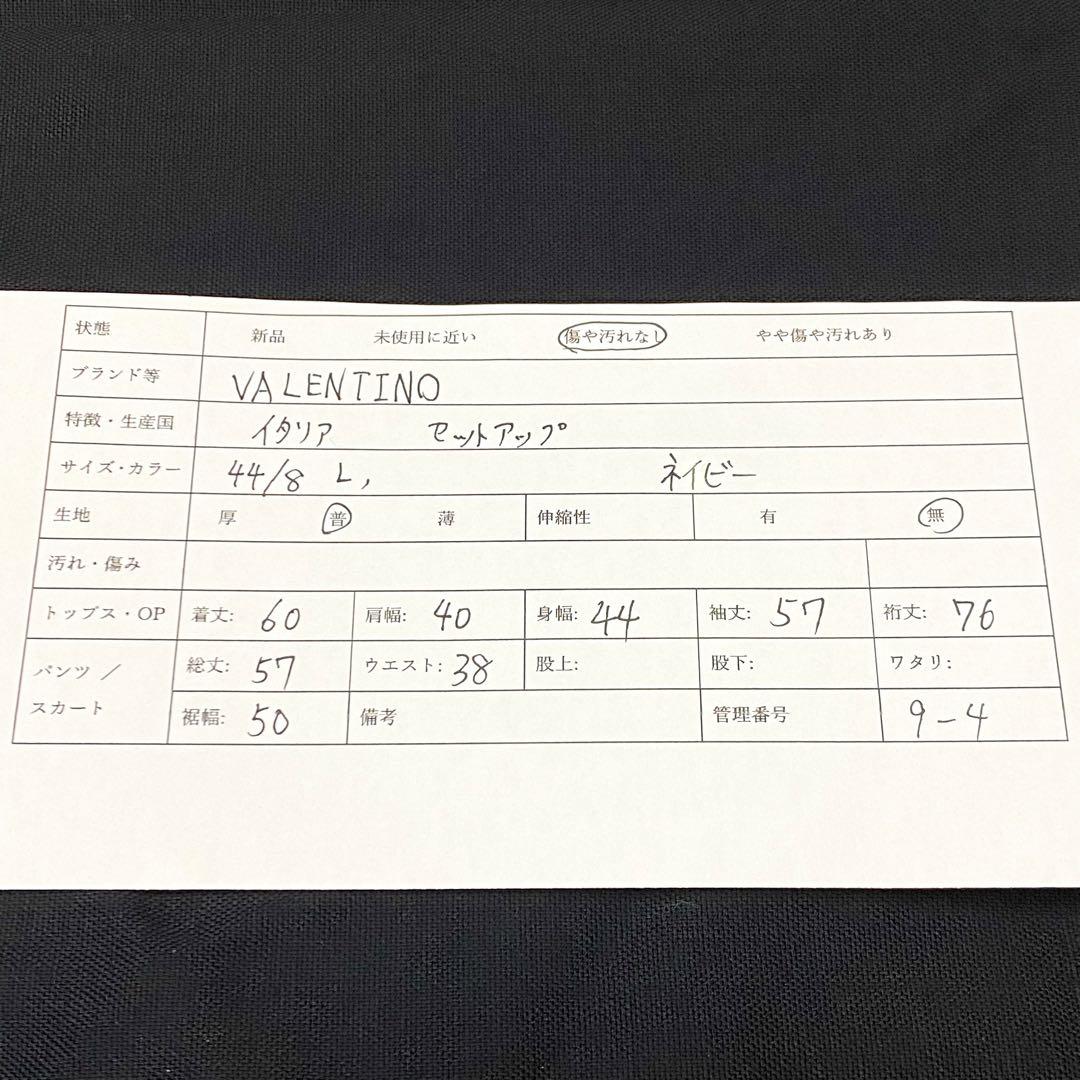 状態 新品 未使用に近い 傷や汚れなし やや傷や汚れあり
ブランド等 VALENTINO
特徴・生産国 イタリア セットアップ
サイズ・カラー 44/8 L, ネイビー
生地 厚 普 薄 伸縮性 有 無
汚れ・傷み
トップス・OP 着丈: 60 肩幅: 40 身幅: 44 袖丈: 57 裄丈: 76
パンツ / スカート 総丈: 57 ウエスト: 38 股上: 股下: ワタリ:
裾幅: 50 備考 管理番号 9-4